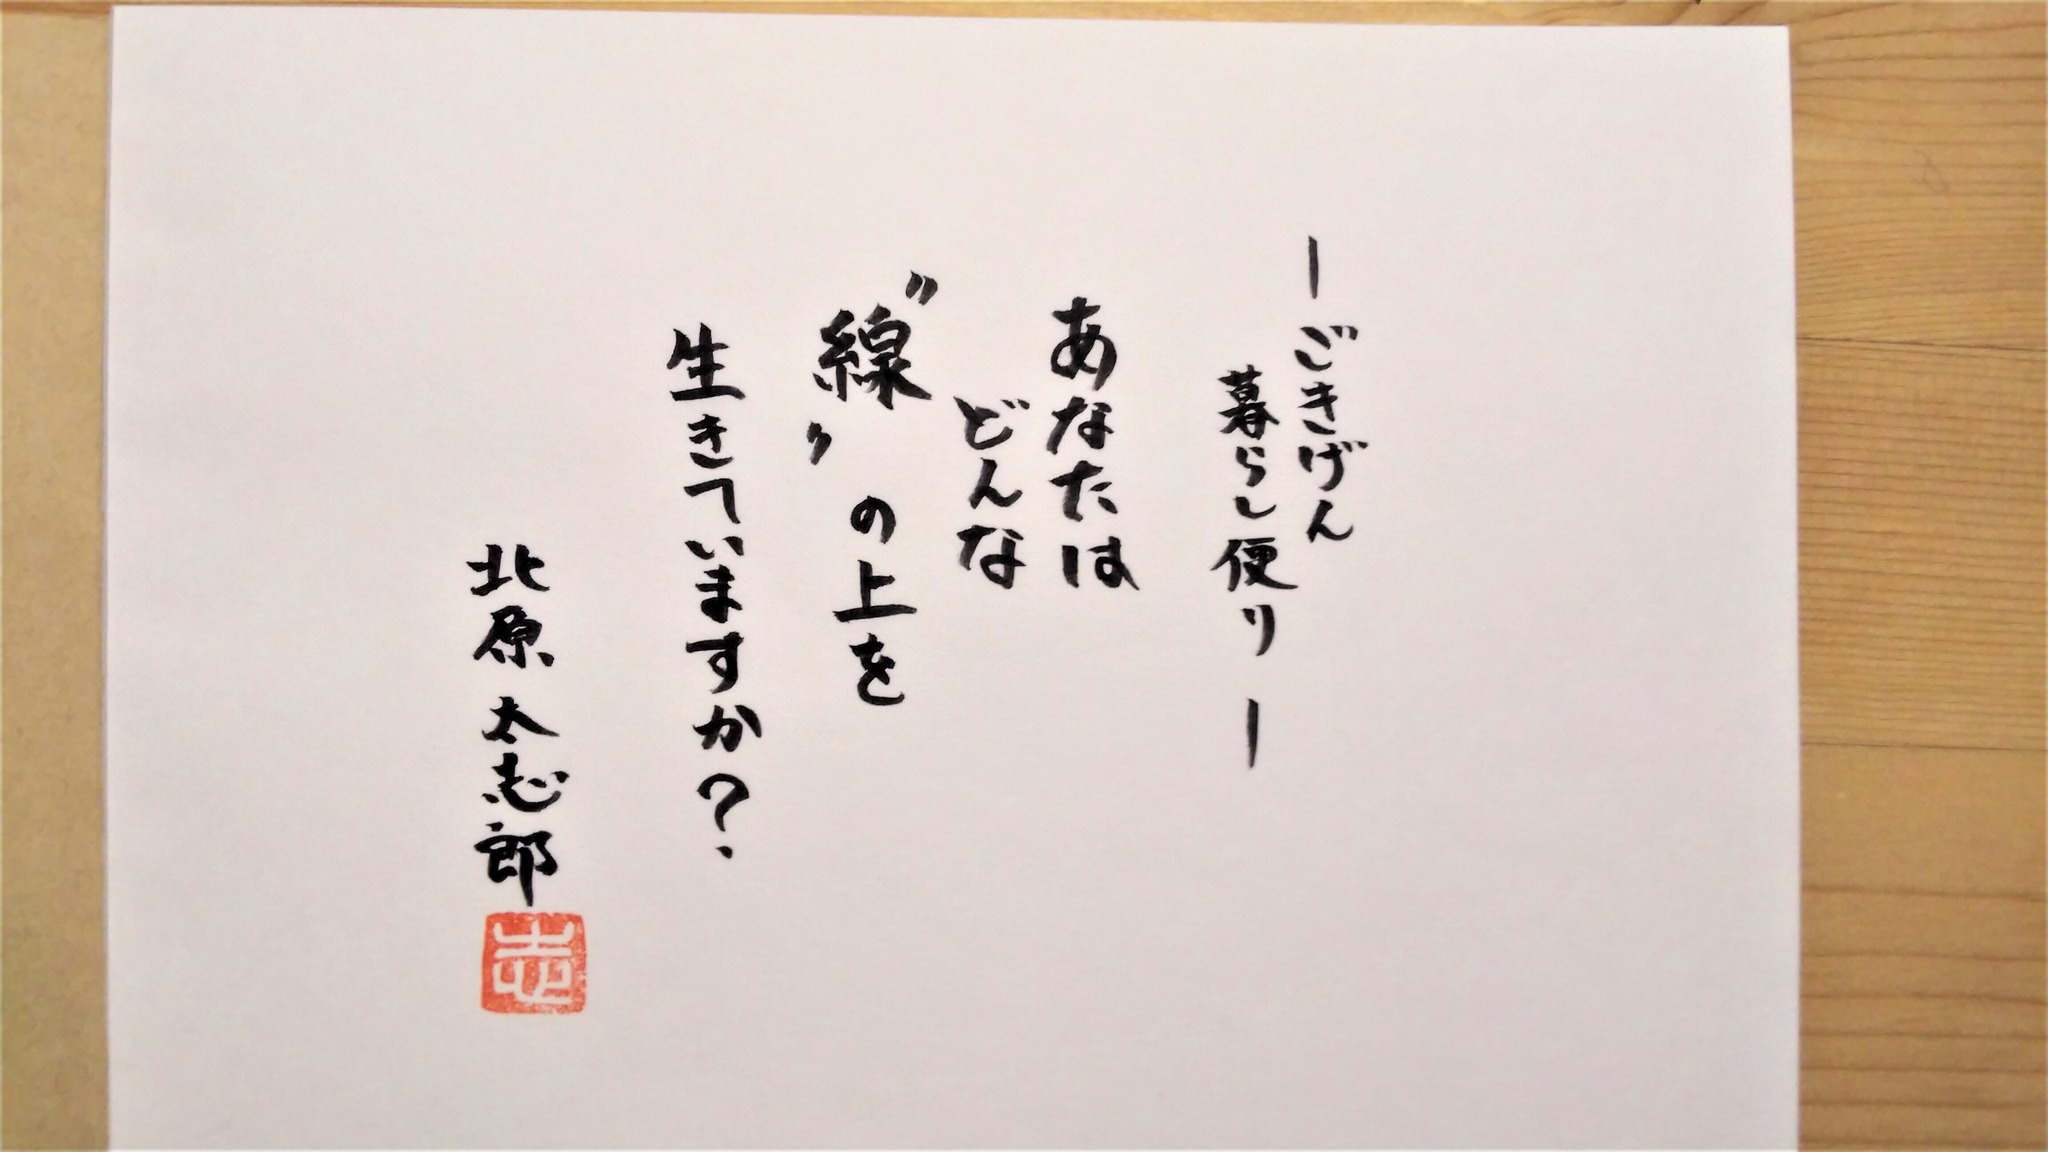 ーごきげん
暮らし便りー
あなたは
どんな
〝線〟の上を
生きていますか？
北原 太志郎
志